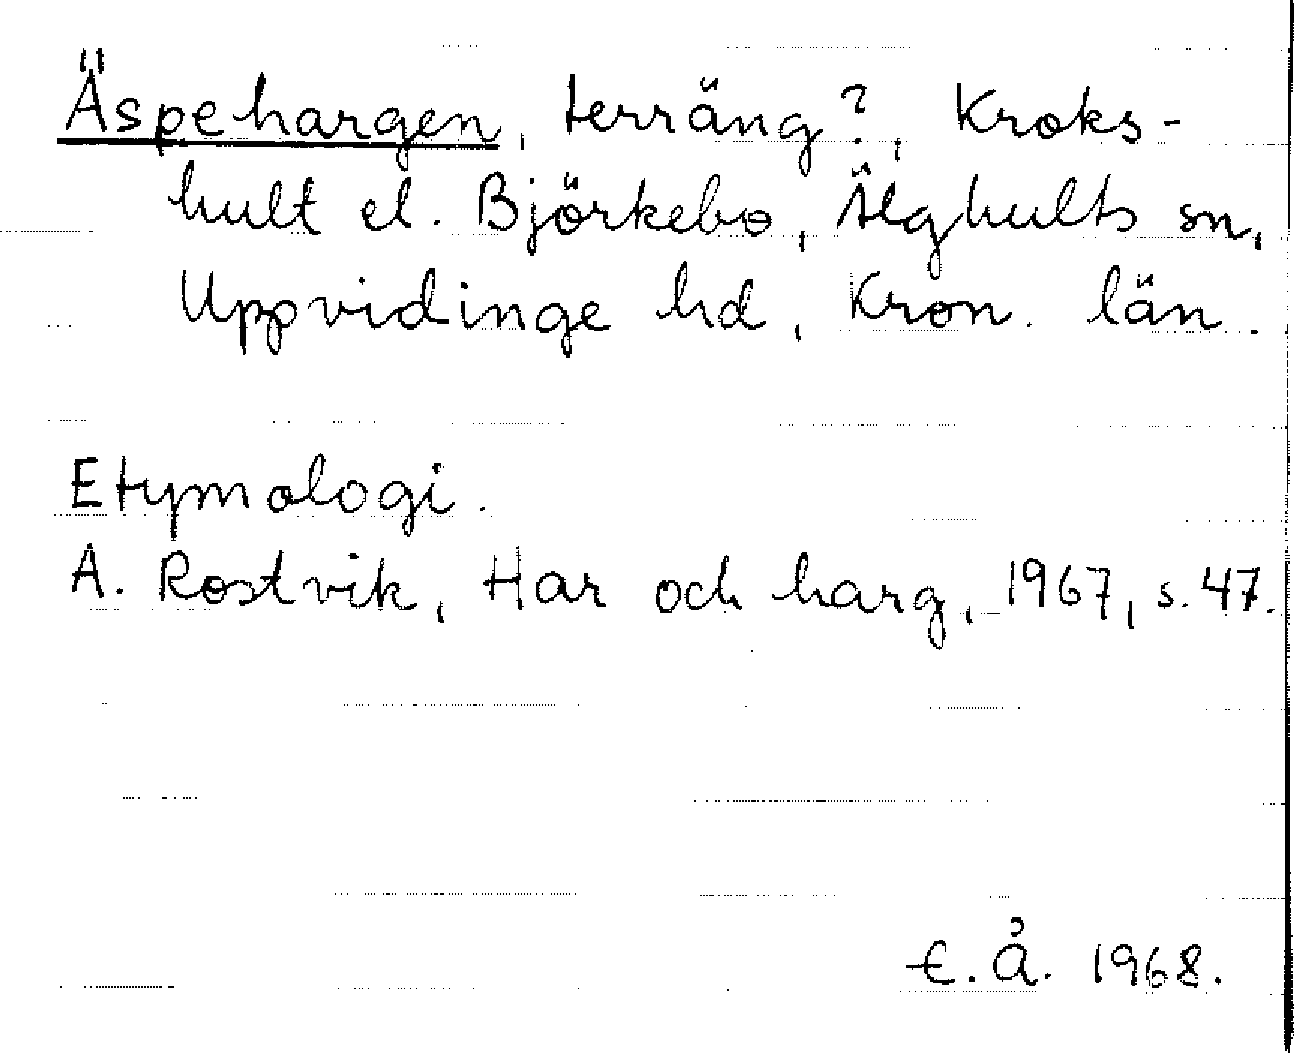 Äspehargen, terräng?, Kroks-
hult el. Björkebo, Älghults sn,
Uppvidinge hd, Kron. län.
Etymologi.
A. Rostvik, Har och harg, 1967, s. 47.
E. Å. 1968.